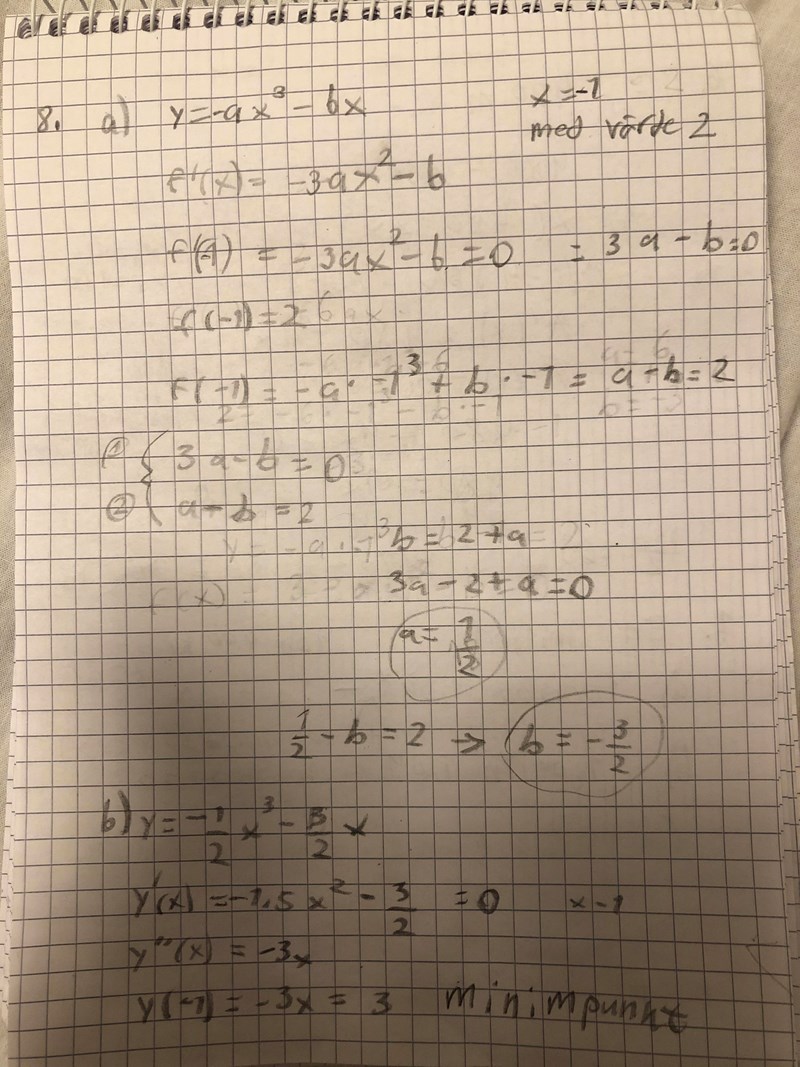 8. a) y=-ax³ - bx x=-1
med värde 2
f'(x) = -3ax² - b
f'(-1) = -3ax² - b = 0 = 3a - b = 0
f(-1) = 2
f(-1) = -a · -1³ + b · -1 = a - b = 2
① { 3a - b = 0
② { a - b = 2
b = 2 + a
3a - 2 + a = 0
a = 1/2
1/2 - b = 2 → b = -3/2
b) y = -1/2 x³ - 3/2 x
y'(x) = -1.5x² - 3/2 = 0 x -1
y''(x) = -3x
y(-1) = -3x = 3 minimpunkt